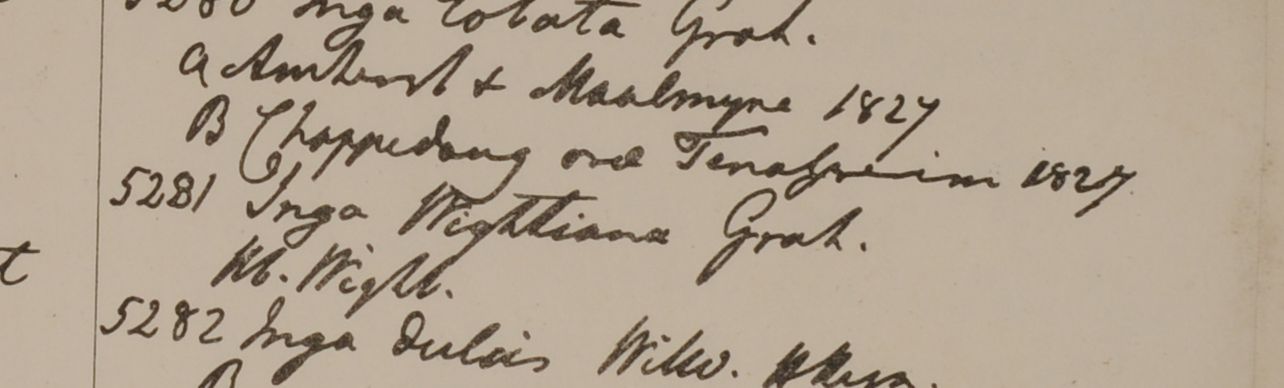 5280 Inga lobata Grah.
a Amherst & Maalmyne 1827
B Chappedong oræ Tenasserim 1827
5281 Inga Wightiana Grah.
t Hb. Wight.
5282 Inga dulcis Willd.
B